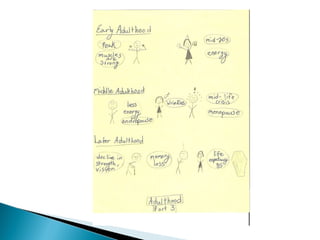 Early Adulthood
Peak
muscles
are
strong
mid-20s
energy
Middle Adulthood
less
energy
andropause
wrinkles
mid-life
crisis
menopause
Later Adulthood
decline in
strength,
vision
memory
loss
life
expectancy
Adulthood
Part 3